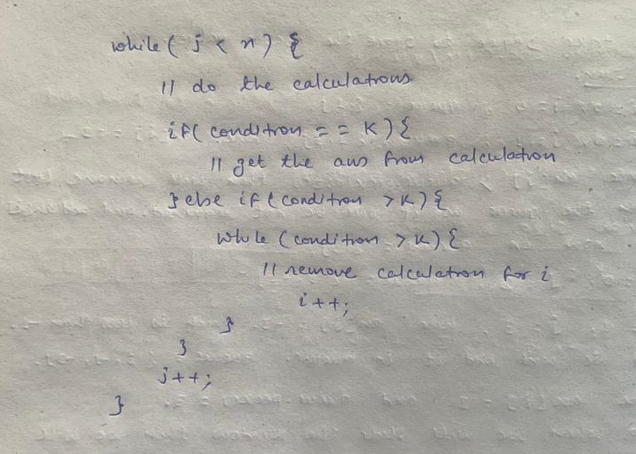 while ( j < n ) {
// do the calculations
if( condition == K ) {
// get the ans from calculation
} else if ( condition > K ) {
while ( condition > K ) {
// remove calculation for i
i++;
}
}
j++;
}